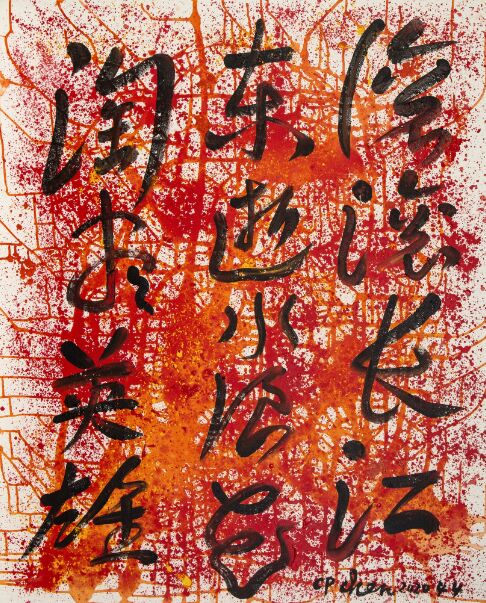 滚滚长江
东逝水浪花
淘尽英雄
CP Chen 2020